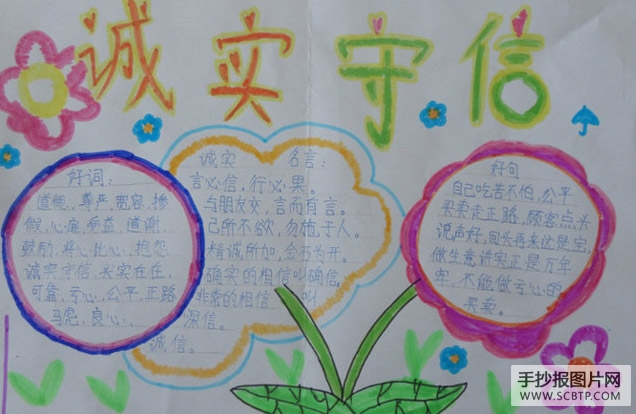 诚实守信
好词:
道德,尊严,宽容,掺
假,心寒,受益,道谢,
鼓励,将心比心,抱怨
诚实守信,长实在在,
可靠,亏心,公平,正路
马虎,良心,
诚实 名言:
言必信,行必果。
与朋友交,言而有言。
己所不欲,勿施于人。
精诚所加,金石为开。
确实的相信叫确信,
非常的相信 叫
深信。
诚信。
好句
自己吃苦不怕,公平
买卖走正路,顾客点头
说声好,回头再来这是宝,
做生意讲实正是万年
牢,不能做亏心的
买卖。
手抄报图片网
WWW.SCBTP.COM